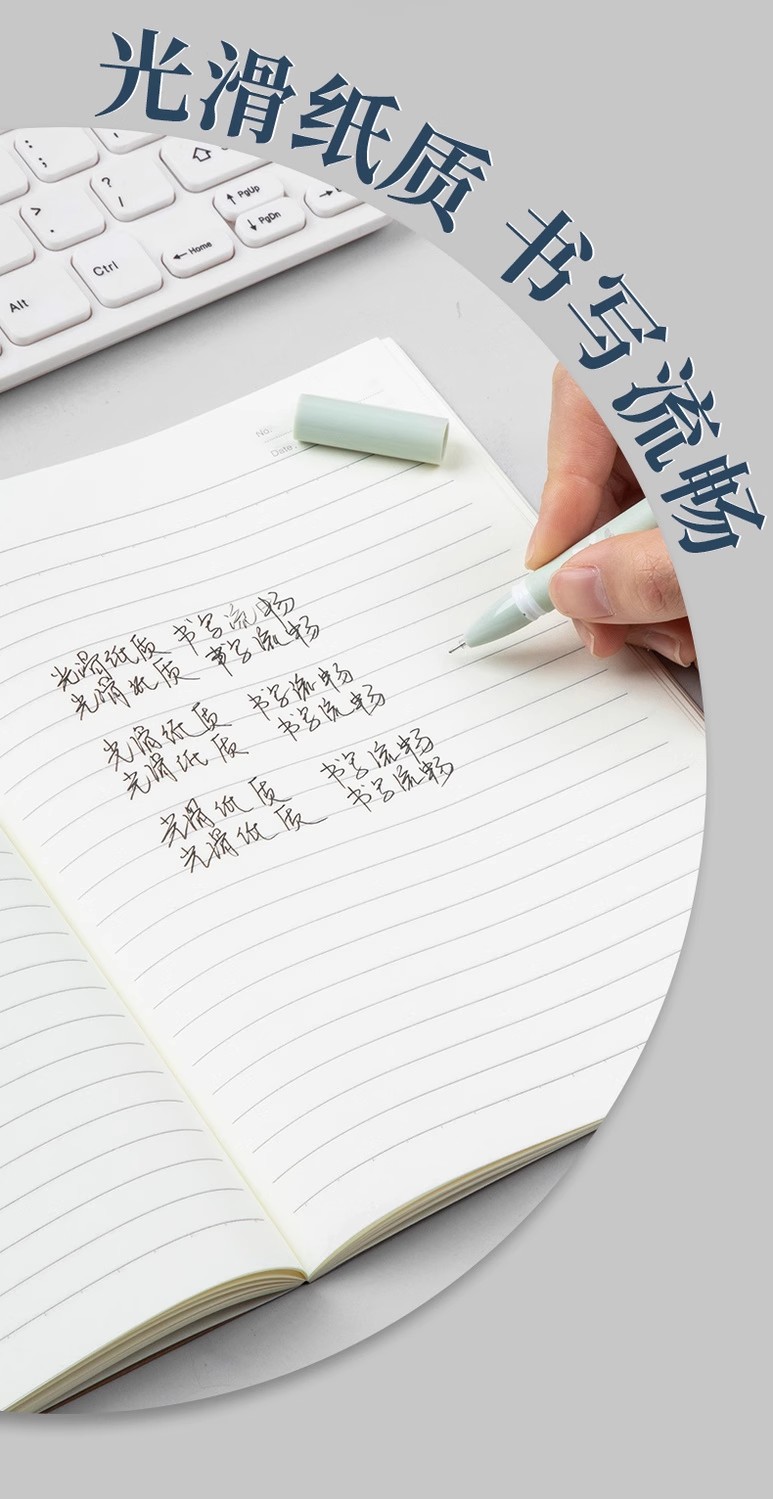 光滑纸质 书写流畅
: ;
? /
> .
PgUp
PgDn
Home
Ctrl
Alt
No:
Date:
光滑纸质 书写流畅
光滑纸质 书写流畅
光滑纸质 书写流畅
光滑纸质 书写流畅
光滑纸质 书写流畅
光滑纸质 书写流畅